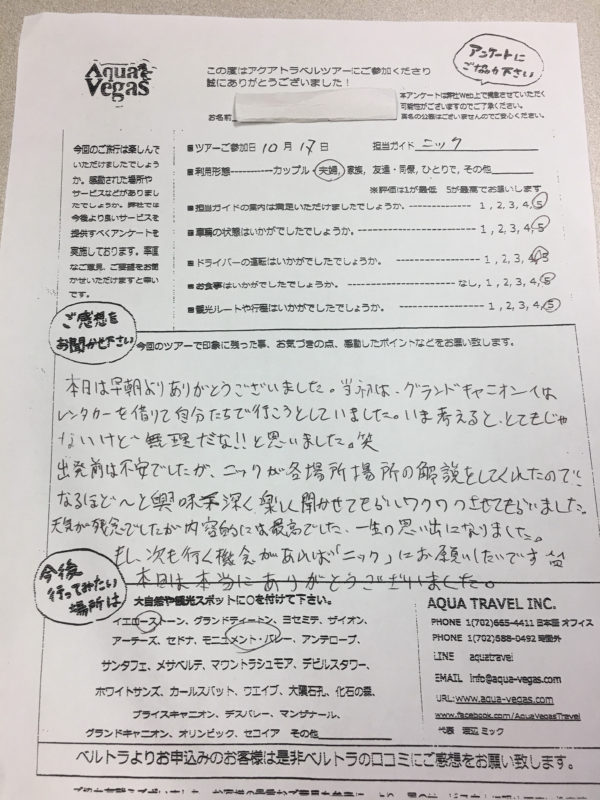 Aqua Vegas
この度はアクアトラベルツアーにご参加くださり
誠にありがとうございました！
アンケートに
ご協力下さい
本アンケートは弊社Web上で掲載させていただく
可能性がございますのでご了承ください。
実名の公開はございませんのでご安心ください。
お名前
■ツアーご参加日 10月 17日 担当ガイド ニック
■利用形態------------カップル・夫婦, 家族, 友達・同僚, ひとりで, その他
※評価は1が最低 5が最高でお願いします
■担当ガイドの案内は満足いただけましたでしょうか。 ---------------- 1 , 2, 3, 4, 5
■車輌の状態はいかがでしたでしょうか。 ---------------- 1 , 2, 3, 4, 5
■ドライバーの運転はいかがでしたでしょうか。 ---------------- 1 , 2, 3, 4, 5
■お食事はいかがでしたでしょうか。 ---------------- なし, 1, 2, 3, 4, 5
■観光ルートや行程はいかがでしたでしょうか。 ---------------- 1 , 2, 3, 4, 5
今回のご旅行は楽しんで
いただけましたでしょう
か。感動された場所や
サービスなどがありまし
たでしょうか。弊社では
今後より良いサービスを
提供すべくアンケートを
実施しております。率直
なご意見、ご要望をお聞
かせいただけますと幸い
です。
ご感想を
お聞かせ下さい
今回のツアーで印象に残った事、お気づきの点、感動したポイントなどをお願い致します。
本日は早朝よりありがとうございました。当初は、グランドキャニオンへは
レンタカーを借りて自分たちで行こうとしていました。いま考えると、とてもじゃ
ないけど無理だな!!と思いました。笑
出発前は不安でしたが、ニックが各場所場所の解説をしてくれたので
なるほど〜と興味深く楽しく聞かせてもらいワクワクさせてもらいました。
天気が残念でしたが内容的には最高でした、一生の思い出になりました。
もし、次も行く機会があれば「ニック」にお願いしたいです
本日は本当にありがとうございました。
今後
行ってみたい
場所は
大自然や観光スポットに○を付けて下さい。
イエローストーン、グランドティートン、ヨセミテ、ザイオン、
アーチーズ、セドナ、モニュメント・バレー、アンテロープ、
サンタフェ、メサベルデ、マウントラシュモア、デビルスタワー、
ホワイトサンズ、カールスバット、ウエイブ、大隕石孔、化石の森、
ブライスキャニオン、デスバレー、マンザナール、
グランドキャニオン、オリンピック、セコイア その他
AQUA TRAVEL INC.
PHONE 1(702)665-4411 日本語 オフィス
PHONE 1(702)588-0492 時間外
LINE aquatravel
EMAIL info@aqua-vegas.com
URL: www.aqua-vegas.com
www.facebook.com/AquaVegasTravel
代表 渡辺 ミック
ベルトラよりお申込みのお客様は是非ベルトラの口コミにご感想をお願い致します。